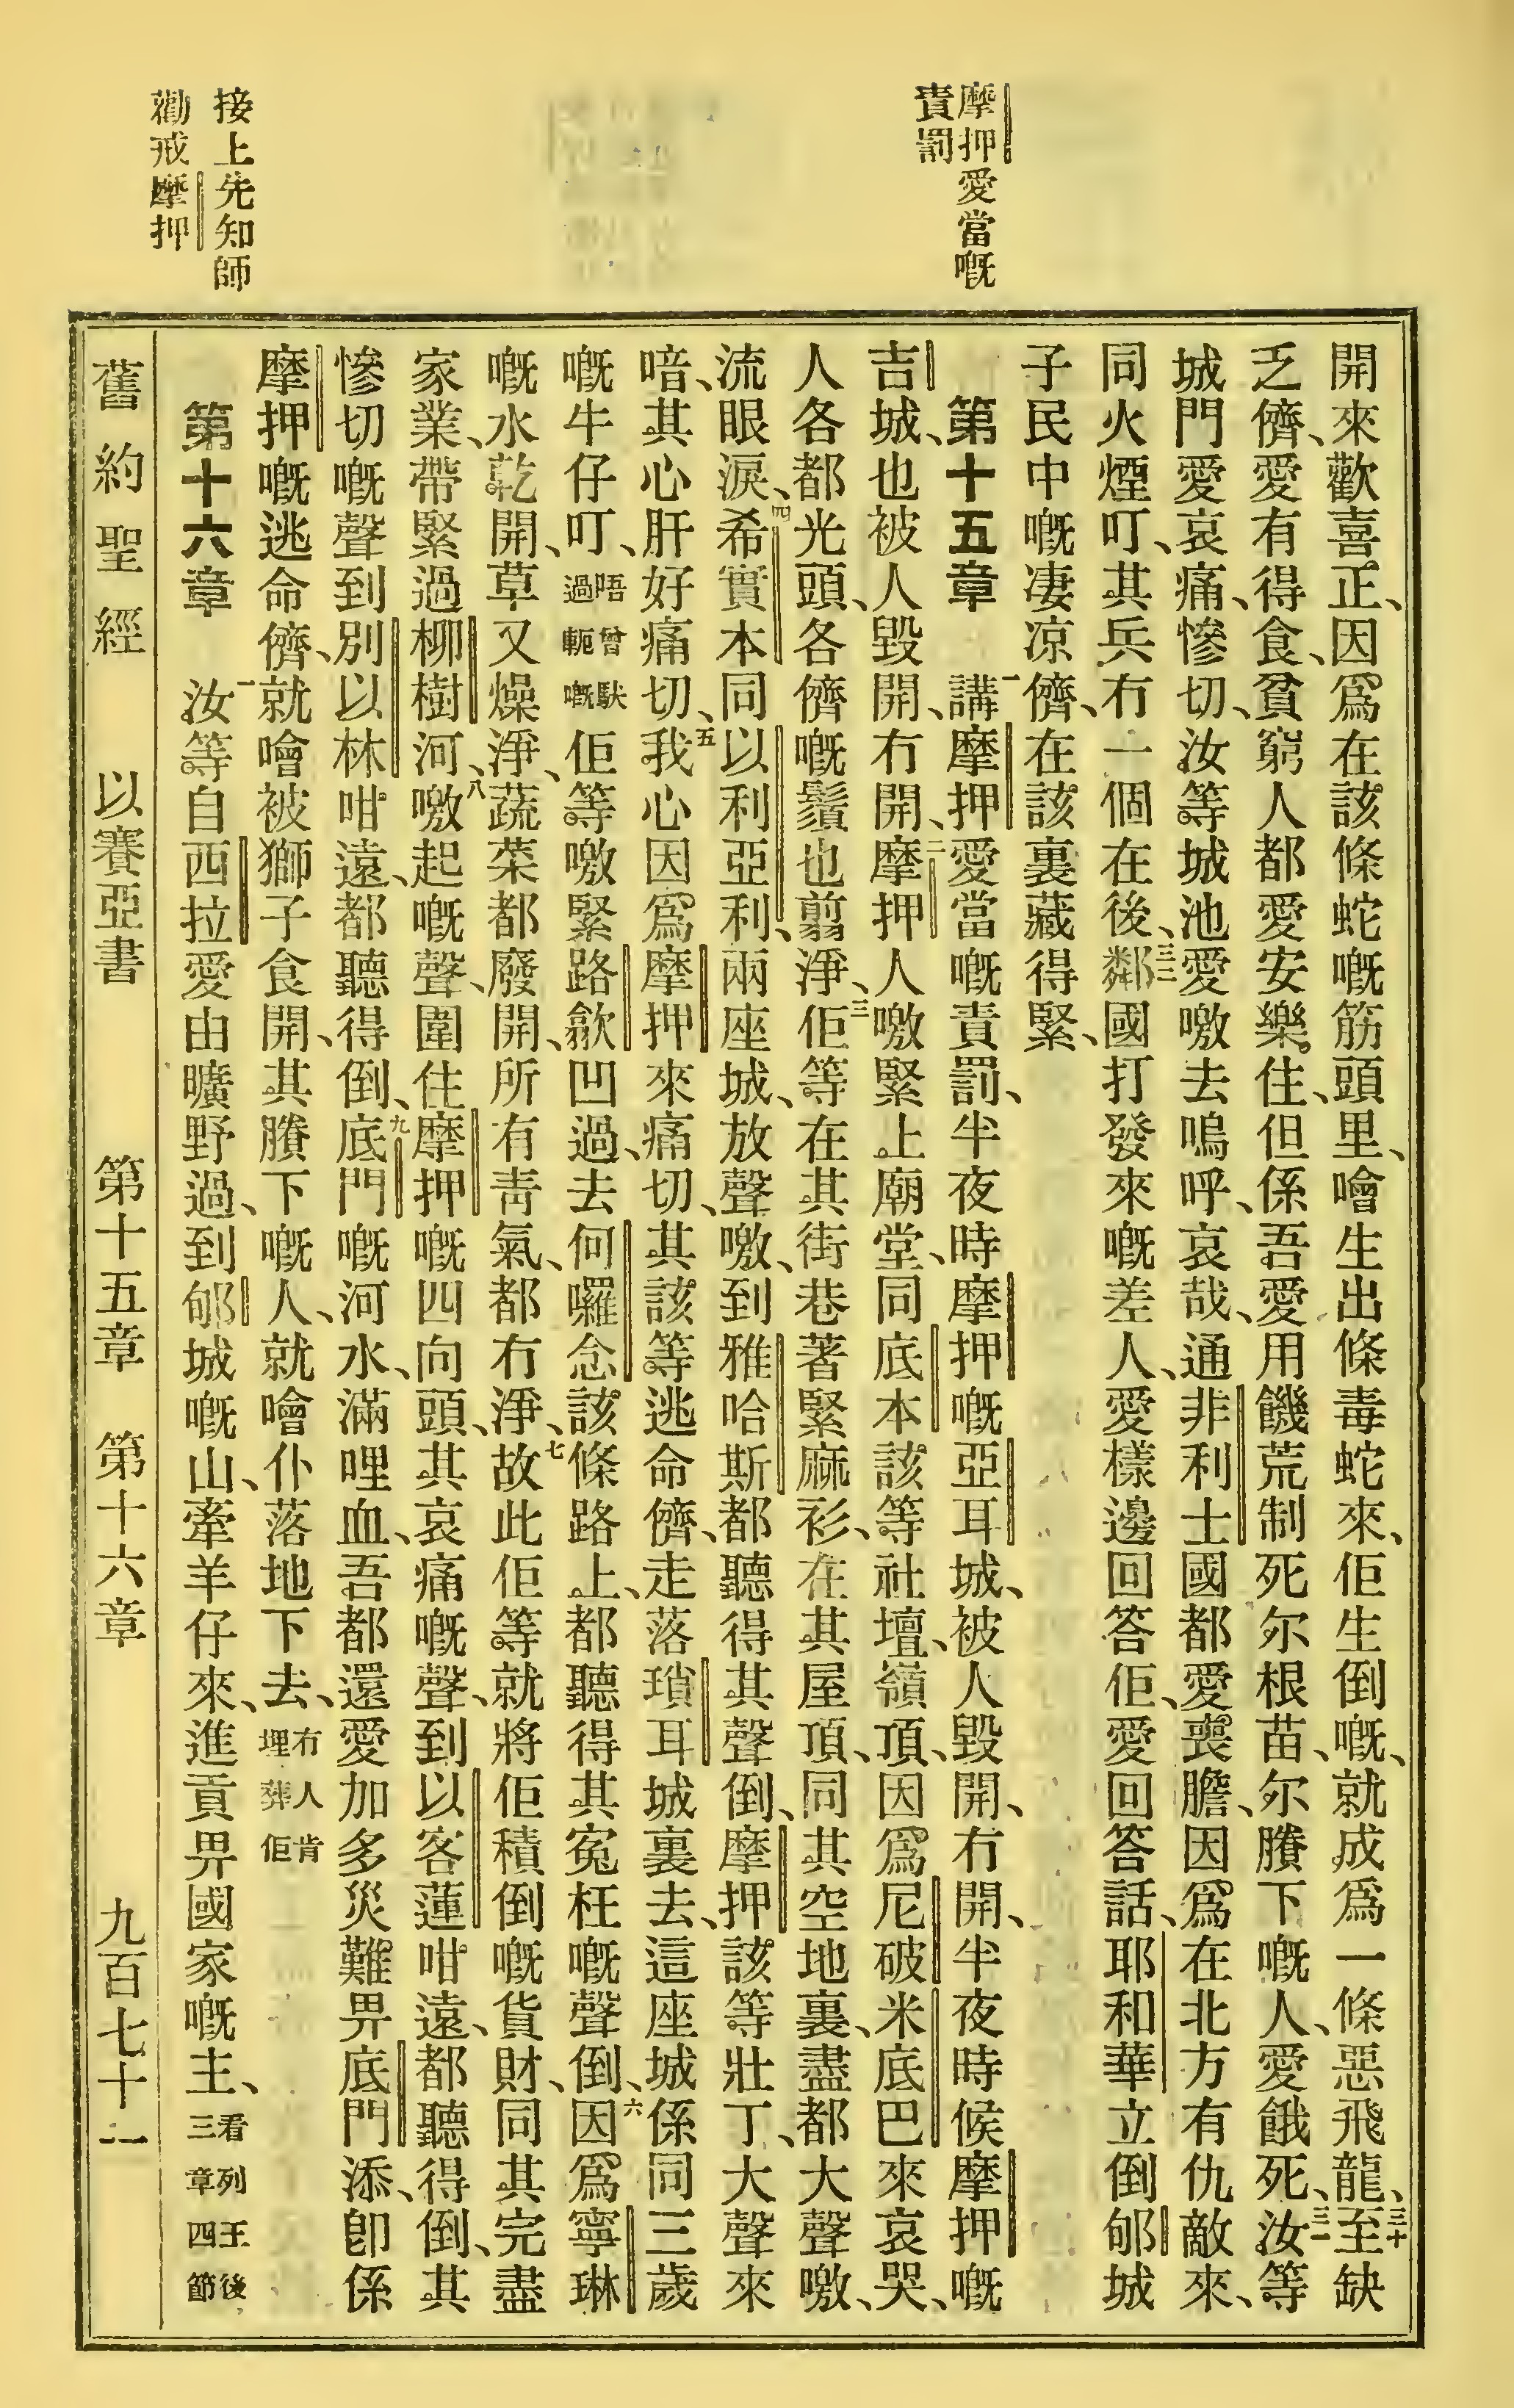 摩押愛當嘅
責罰
接上先知師
勸戒摩押
開來歡喜正、因爲在該條蛇嘅筋頭里、噲生出條毒蛇來、佢生倒嘅、就成爲一條惡飛龍、三十至缺
乏儕、愛有得食、貧窮人都愛安樂住、但係吾愛用饑荒制死尔根苗、尔賸下嘅人、愛餓死、三一汝等
城門愛哀痛、慘切、汝等城池愛噭去嗚呼、哀哉、通非利士國都愛喪膽、因爲在北方有仇敵來、
同火煙叮、其兵冇一個在後、三二鄰國打發來嘅差人、愛樣邊回答佢、愛回答話、耶和華立倒郇城
子民中嘅凄凉儕、在該裏藏得緊、
第十五章　一講摩押愛當嘅責罰、半夜時摩押嘅亞耳城、被人毀開、冇開、半夜時候摩押嘅
吉城、也被人毀開、冇開、二摩押人噭緊上廟堂、同底本該等社壇、嶺頂、因爲尼破米底巴來哀哭、
人各都光頭、各儕嘅鬚也翦淨、三佢等在其街巷著緊麻衫、在其屋頂、同其空地裏、盡都大聲噭、
流眼淚、四希實本同以利亞利、兩座城、放聲噭、到雅哈斯都聽得其聲倒、摩押該等壯丁、大聲來
喑、其心肝好痛切、五我心因爲摩押來痛切、其該等逃命儕、走落瑣耳城裏去、這座城係同三歲
嘅牛仔叮、唔曾馱過軛嘅佢等噭緊路歙凹過、去何囉念該條路上、都聽得其寃枉嘅聲倒、六因爲寧琳
嘅水乾開、草又燥淨、蔬菜都廢開、所有靑氣、都冇淨、七故此佢等就將佢積倒嘅貨財、同其完盡
家業、帶緊過柳樹河、八噭起嘅聲、圍住摩押嘅四向頭、其哀痛嘅聲、到以客蓮咁遠、都聽得倒、其
慘切嘅聲到別以林咁遠、都聽得倒、九底門嘅河水、滿哩血、吾都還愛加多災難畀底門添、卽係
摩押嘅逃命儕、就噲被獅子食開、其賸下嘅人、就噲仆落地下去、冇人肯埋葬佢
第十六章　一汝等自西拉愛由曠野過、到郇城嘅山、牽羊仔來、進貢畀國家嘅主、看列王後三章四節
舊約聖經　以賽亞書　第十五章　第十六章　九百七十一